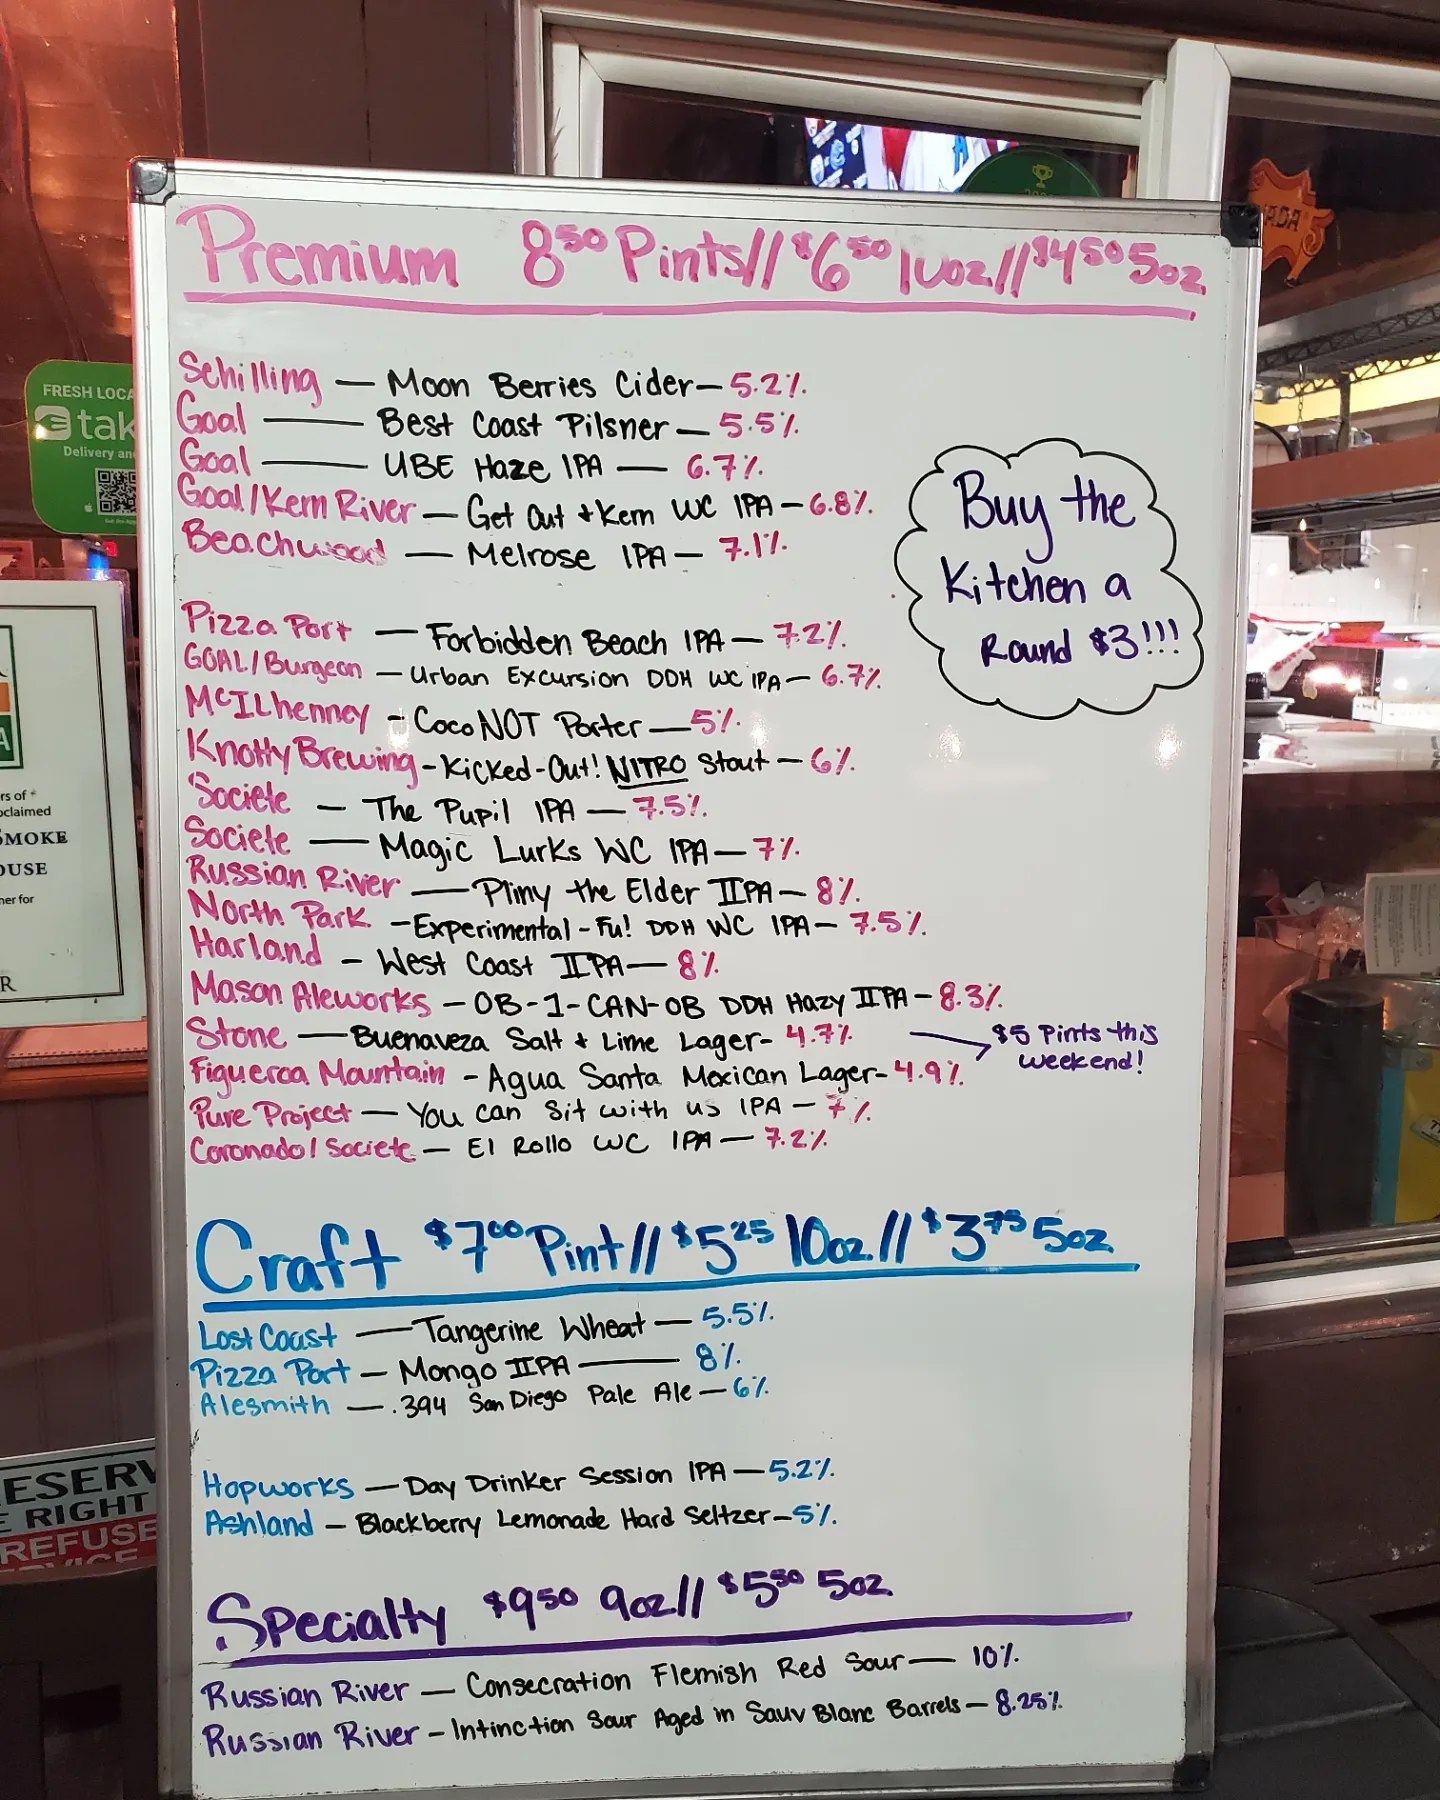 Premium 8⁵⁰ Pints // $6⁵⁰ 10oz // $4⁵⁰ 5oz.
Schilling — Moon Berries Cider — 5.2%.
Goal — Best Coast Pilsner — 5.5%.
Goal — UBE Haze IPA — 6.7%.
Goal/Kern River — Get Out + Kern WC IPA — 6.8%.
Beachwood — Melrose IPA — 7.1%.
Buy the
Kitchen a
Round $3!!!
Pizza Port — Forbidden Beach IPA — 7.2%.
GOAL/Burgeon — Urban Excursion DDH WC IPA — 6.7%.
McILhenney - CocoNOT Porter — 5%.
Knotty Brewing - Kicked-Out! NITRO Stout — 6%.
Societe — The Pupil IPA — 7.5%.
Societe — Magic Lurks WC IPA — 7%.
Russian River — Pliny the Elder IIPA — 8%.
North Park - Experimental-Fu! DDH WC IPA — 7.5%.
Harland - West Coast IIPA — 8%.
Mason Aleworks - OB-1-CAN-OB DDH Hazy IIPA - 8.3%.
Stone — Buenaveza Salt + Lime Lager - 4.7%.
$5 Pints this
weekend!
Figueroa Mountain - Agua Santa Mexican Lager - 4.9%.
Pure Project — You can sit with us IPA — 7%.
Coronado/Societe — El Rollo WC IPA — 7.2%.
Craft $7⁰⁰ Pint // $5²⁵ 10oz. // $3⁷⁵ 5oz.
Lost Coast — Tangerine Wheat — 5.5%.
Pizza Port — Mongo IIPA — 8%.
Alesmith — .394 San Diego Pale Ale — 6%.
Hopworks — Day Drinker Session IPA — 5.2%.
Ashland — Blackberry Lemonade Hard Seltzer — 5%.
Specialty $9⁵⁰ 9oz // $5⁵⁰ 5oz.
Russian River — Consecration Flemish Red Sour — 10%.
Russian River — Intinction Sour Aged in Sauv Blanc Barrels — 8.25%.
FRESH LOCA
tak
Delivery an
rs of
oclaimed
SMOKE
OUSE
ner for
R
ESERV
E RIGHT
REFUSE